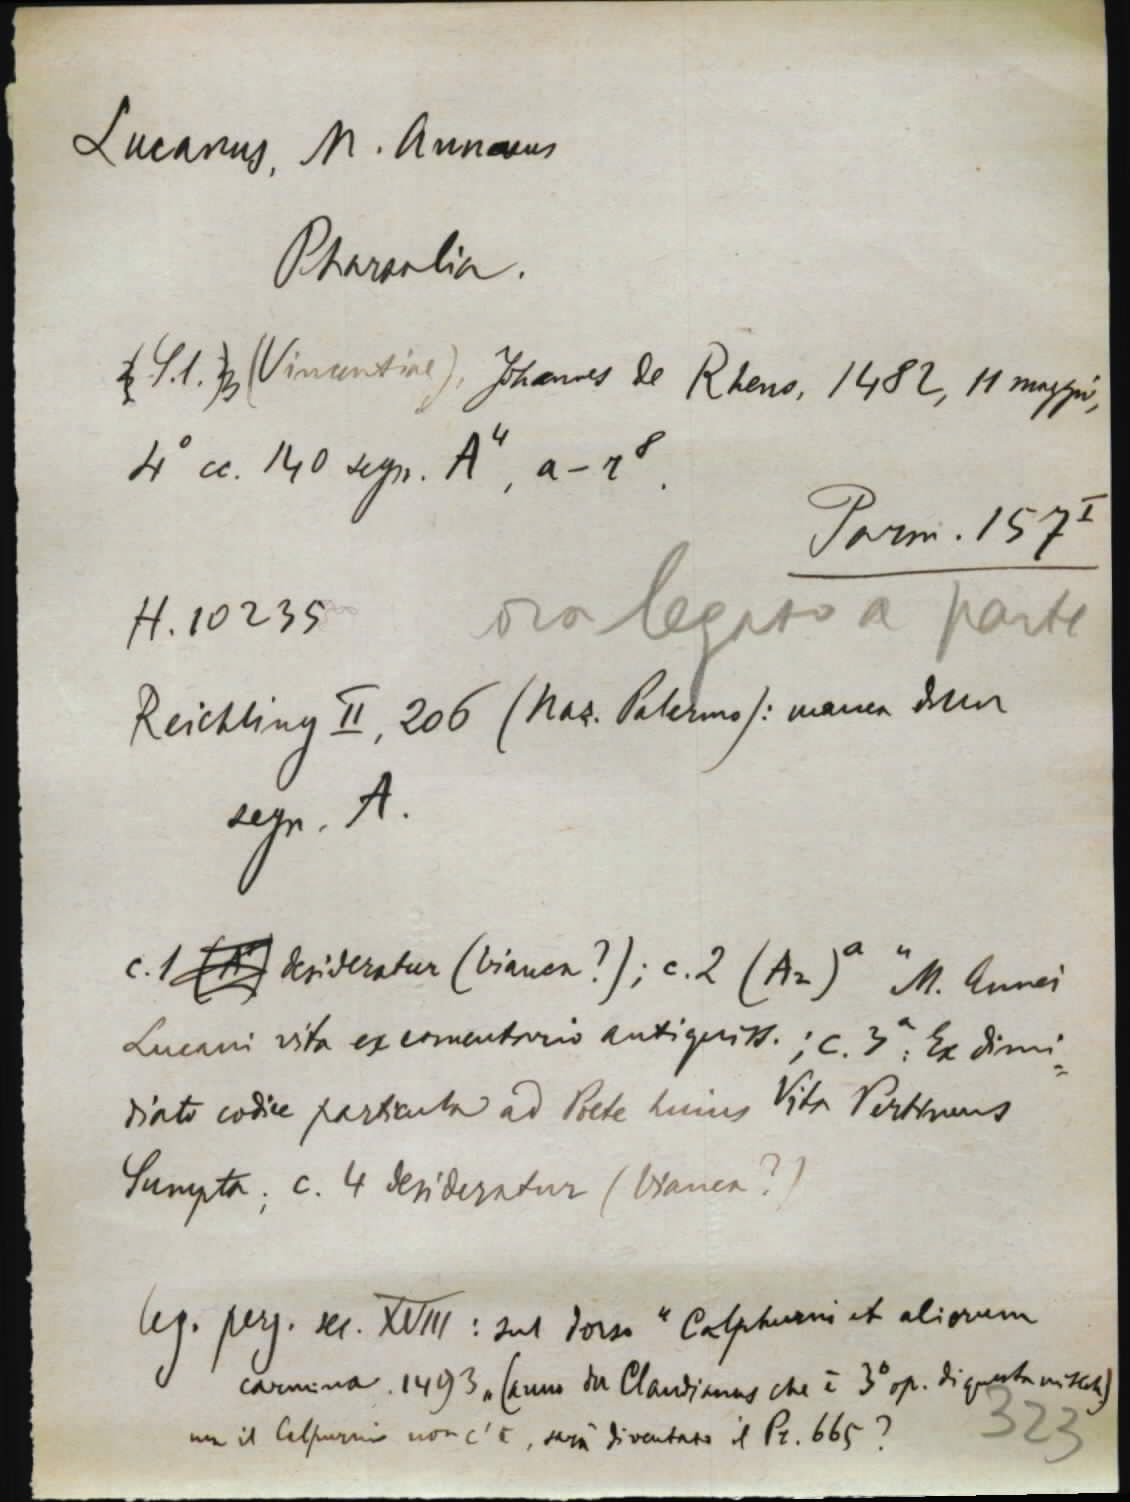 Lucanus, M. Annaeus
Pharsalia.
[S.l.] (Vincentiae), Johannes de Rheno, 1482, 11 maggio,
4° cc. 140 segn. A⁴, a-r⁸.
Parm. 157ᴵ
H. 10235
ora legato a parte
Reichling II, 206 (Naz. Palermo): manca
segn. A.
c. 1 desideratur (bianca?); c. 2 (A2)ᵃ "M. Annei
Lucani vita ex comentario antiquiss.; c. 3ᵃ: Ex dimi=
diato codice particula ad Poete huius Vita Pertinens
Sumpta; c. 4 desideratur (bianca?)
leg. perg. sec. XVIII: sul dorso "Calphurni et aliorum
carmina. 1493" (anno del Claudianus che è 3° op. di questa miscell.)
ma il Calpurnio non c'è, sarà diventato il Pr. 665?
323